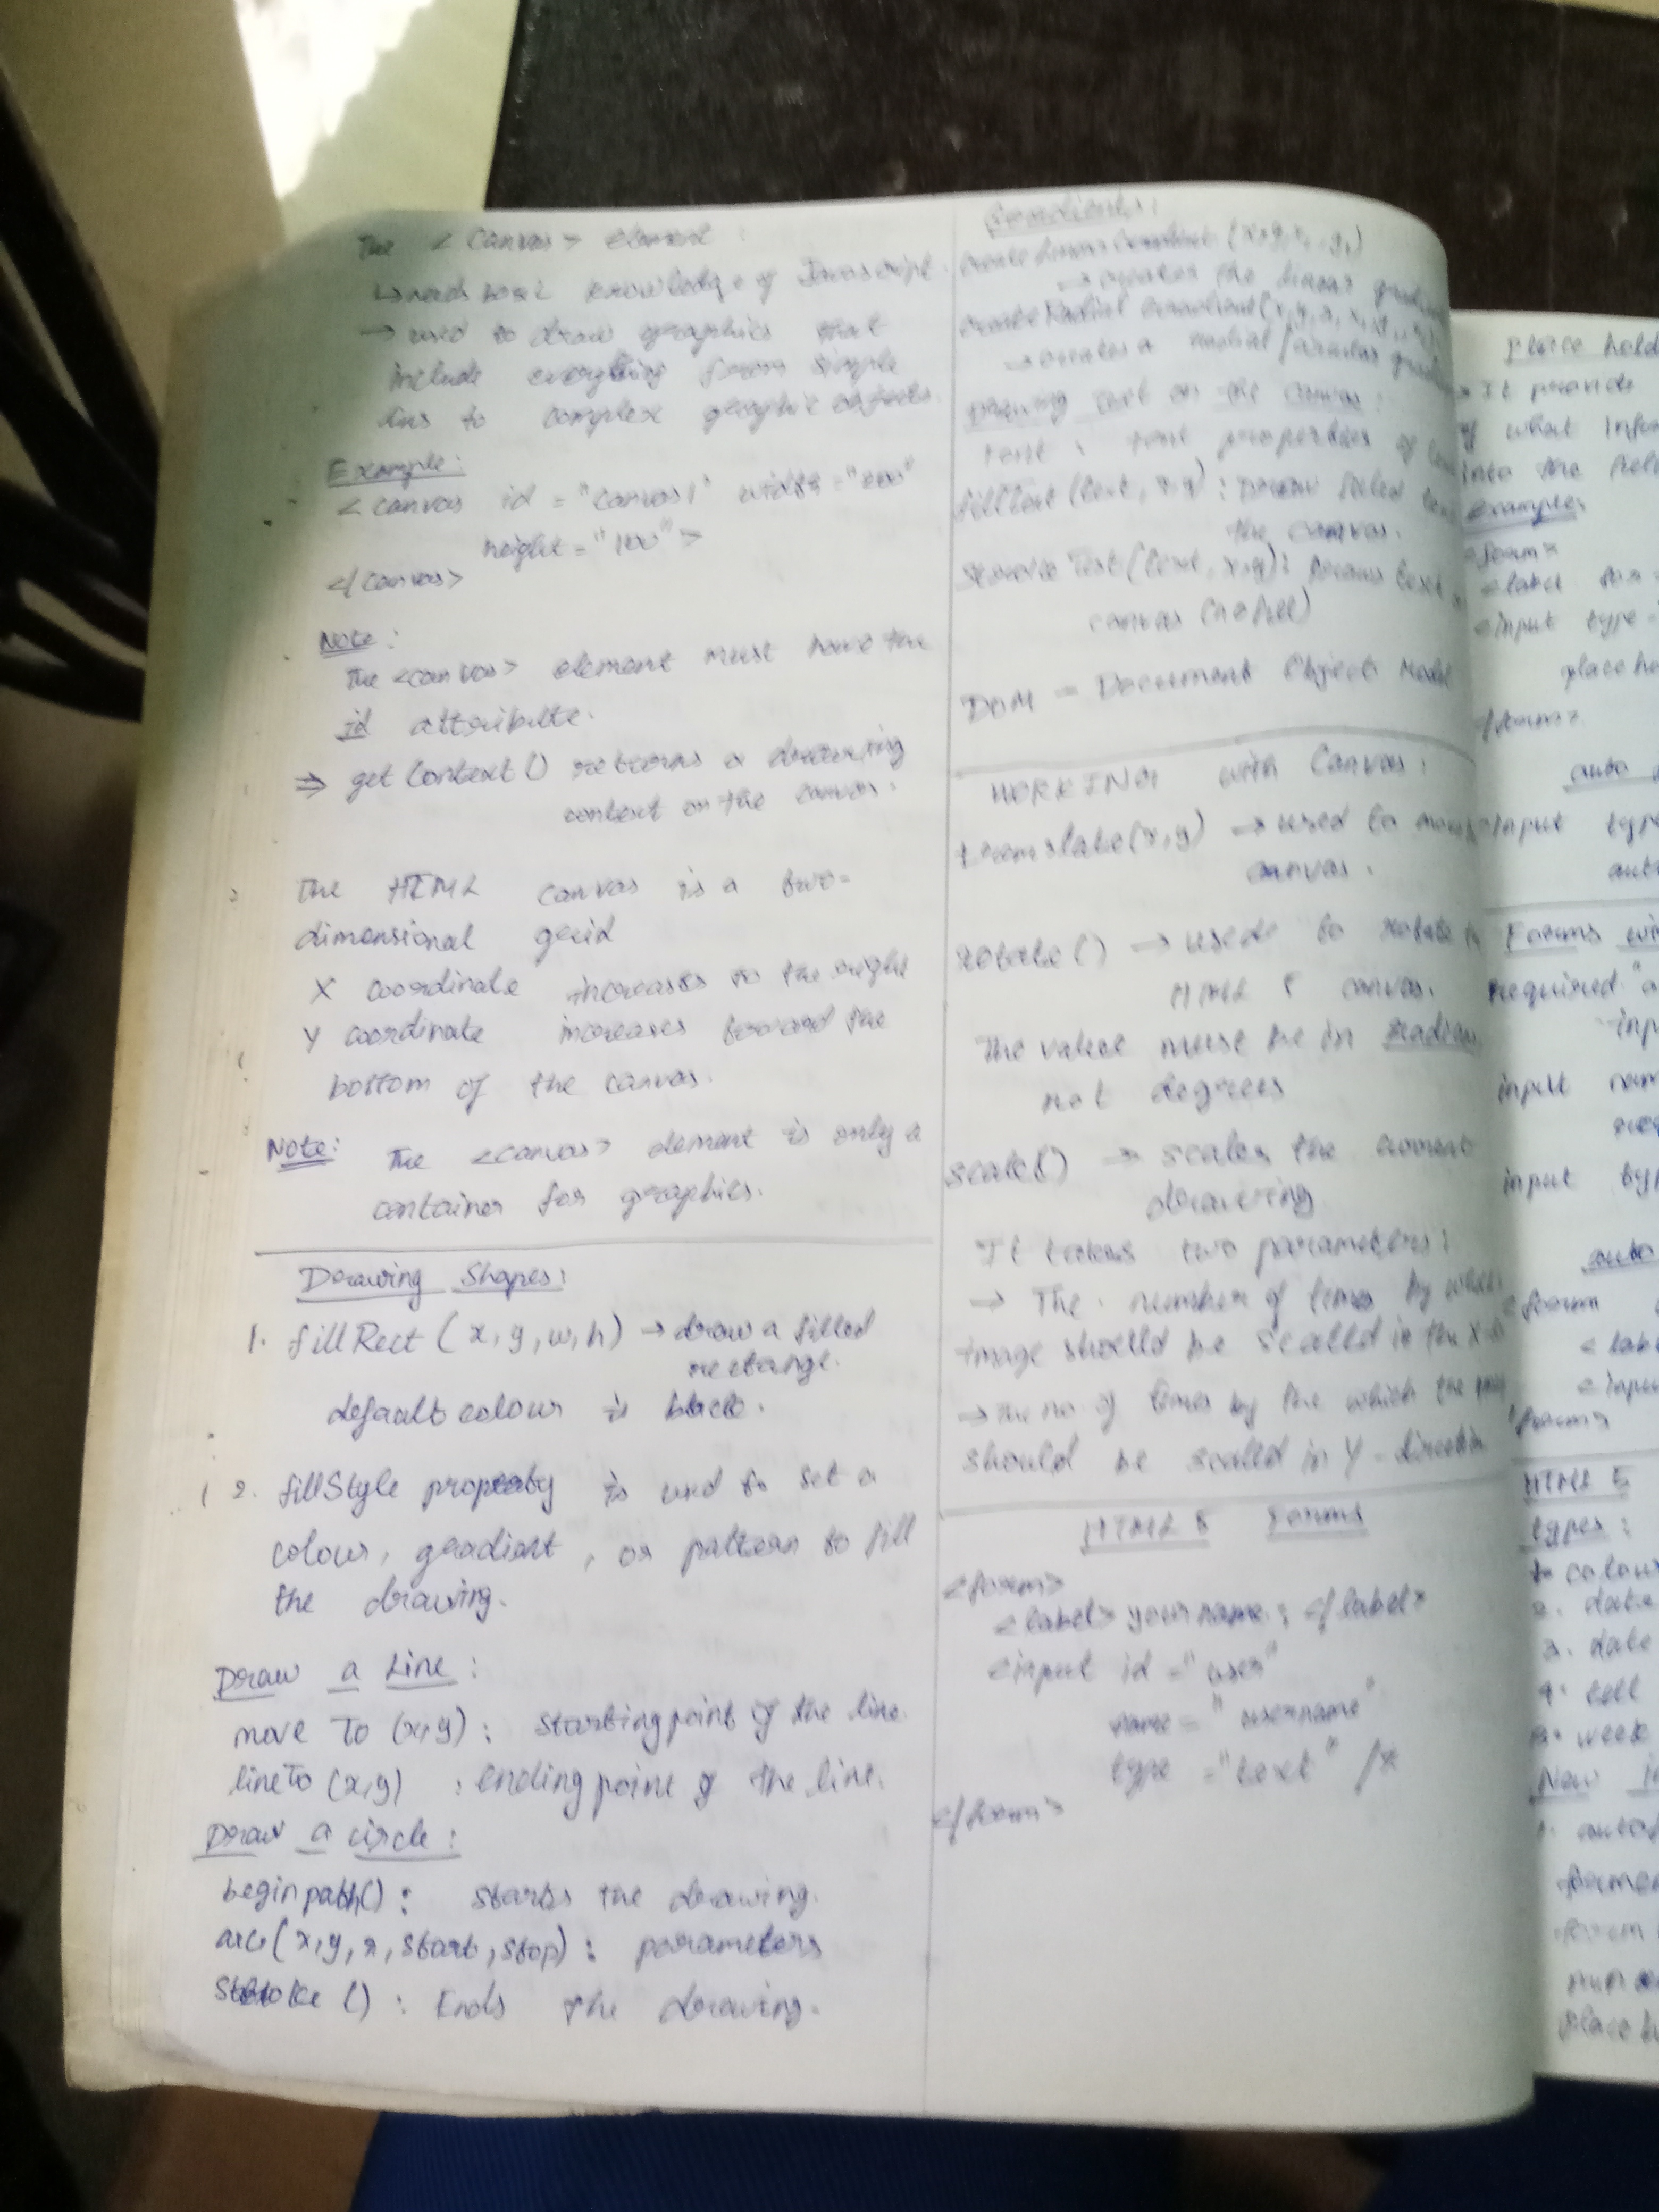 The <Canvas> element :
↳needs basic knowledge of Javascript.
→ used to draw graphics that
include everything from simple
lins to complex graphic objects.
Example:
<canvas id = "canvas1" width = "200"
height = "100">
</canvas>
Note:
The <canvas> element must have the
id attribute.
⇒ getContext() returns a drawing
context on the canvas.
The HTML canvas is a two-
dimensional grid
X coordinate increases to the right
Y coordinate increases toward the
bottom of the canvas.
Note: The <canvas> element is only a
container for graphics.
Drawing Shapes:
1. fillRect (x, y, w, h) → draw a filled
rectange.
default colour is black.
2. fillStyle property is used to set a
colour, gradient, or pattern to fill
the drawing.
Draw a Line :
move To (x,y) : starting point of the line.
lineTo (x,y) : Ending point of the line.
Draw a circle :
begin path() : starts the drawing.
arc (x, y, r, start, stop) : parameters
Stroke () : Ends the drawing.
Gradients:
create Linear Gradient
→ creates the linear
create Radial Gradient
→ creates a radial /
Drawing Text on the canvas :
font : font properties of
fillText (text, x,y) : Draws filled
the canvas.
stroke Text (text, x,y) : Draws text
canvas (no fill)
DOM = Document Object Model
WORKING with Canvas :
translate(x,y) → used to
canvas.
rotate () → used to rotate
HTML 5 canvas.
The value must be in radians
not degrees
scale() → scales the current
drawing
It takes two parameters :
→ The number of times by which
image should be scalled in the X-
→ the no of times by the which the
should be scalled in Y-direction
HTML 5 Forms
<form>
<label> your name : </label>
<input id = "user"
name = "username"
type = "text" />
</form>
It provide
of what
into the
Examples
<form>
<label
<input type =
</form>
input type
Forms
required
input
input
<form
<input
HTML 5
types :
2. date
3. date
week
New